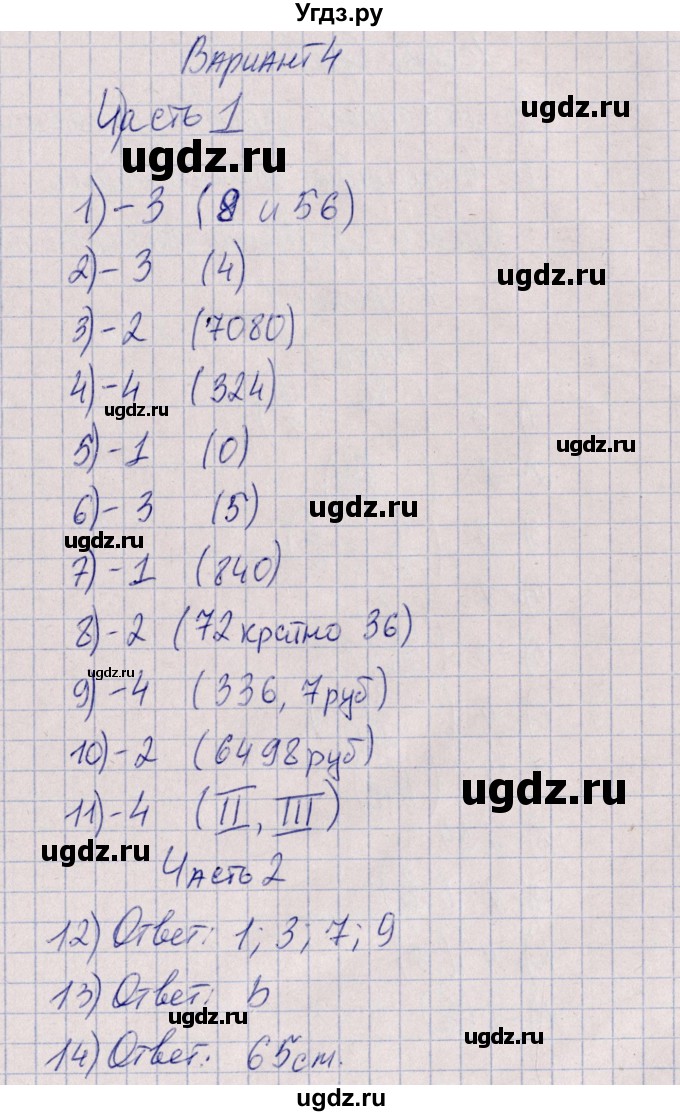 Угдз.ру
Вариант 4
ugdz.ru
Часть 1
ugdz.ru
1) - 3 (8 и 56)
2) - 3 (4)
ugdz.ru
3) - 2 (7080)
4) - 4 (324)
ugdz.ru
5) - 1 (0)
ugdz.ru
6) - 3 (5)
ugdz.ru
ugdz.ru
7) - 1 (840)
8) - 2 (72 кратно 36)
ugdz.ru
9) - 4 (336, 7 руб)
10) - 2 (6498 руб)
ugdz.ru
11) - 4 (II, III)
ugdz.ru
Часть 2
12) Ответ: 1; 3; 7; 9
13) Ответ: b
ugdz.ru
ugdz.ru
14) Ответ: 65 ст.
ugdz.ru